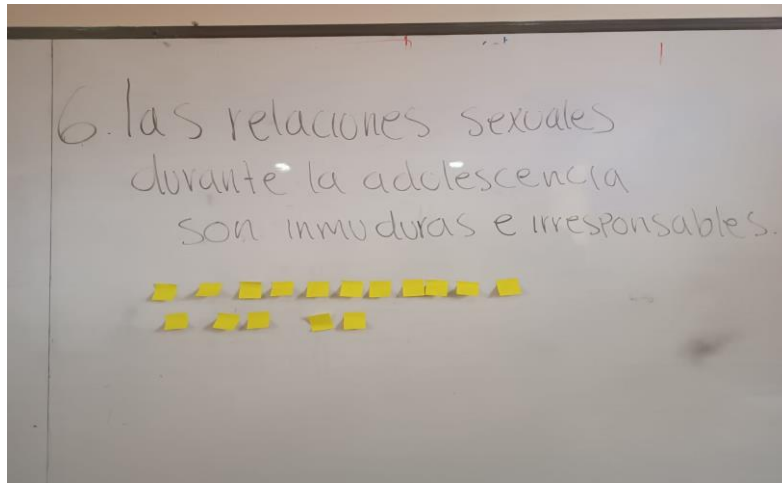 6. las relaciones sexuales
durante la adolescencia
son inmuduras e irresponsables.